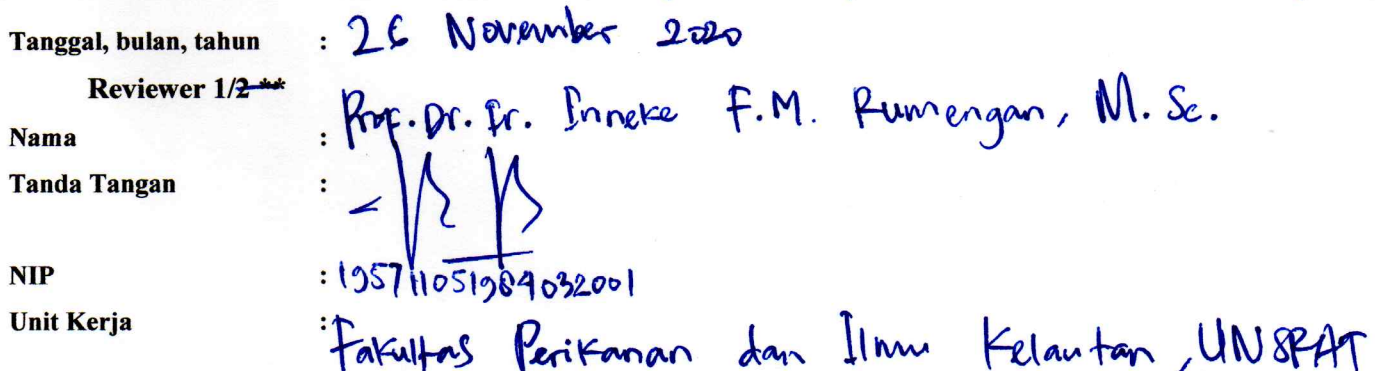 Tanggal, bulan, tahun : 26 November 2020
Reviewer 1/2 **
Nama : Prof. Dr. Ir. Inneke F.M. Rumengan, M. Sc.
Tanda Tangan :
NIP : 195711051984032001
Unit Kerja : Fakultas Perikanan dan Ilmu Kelautan, UNSRAT